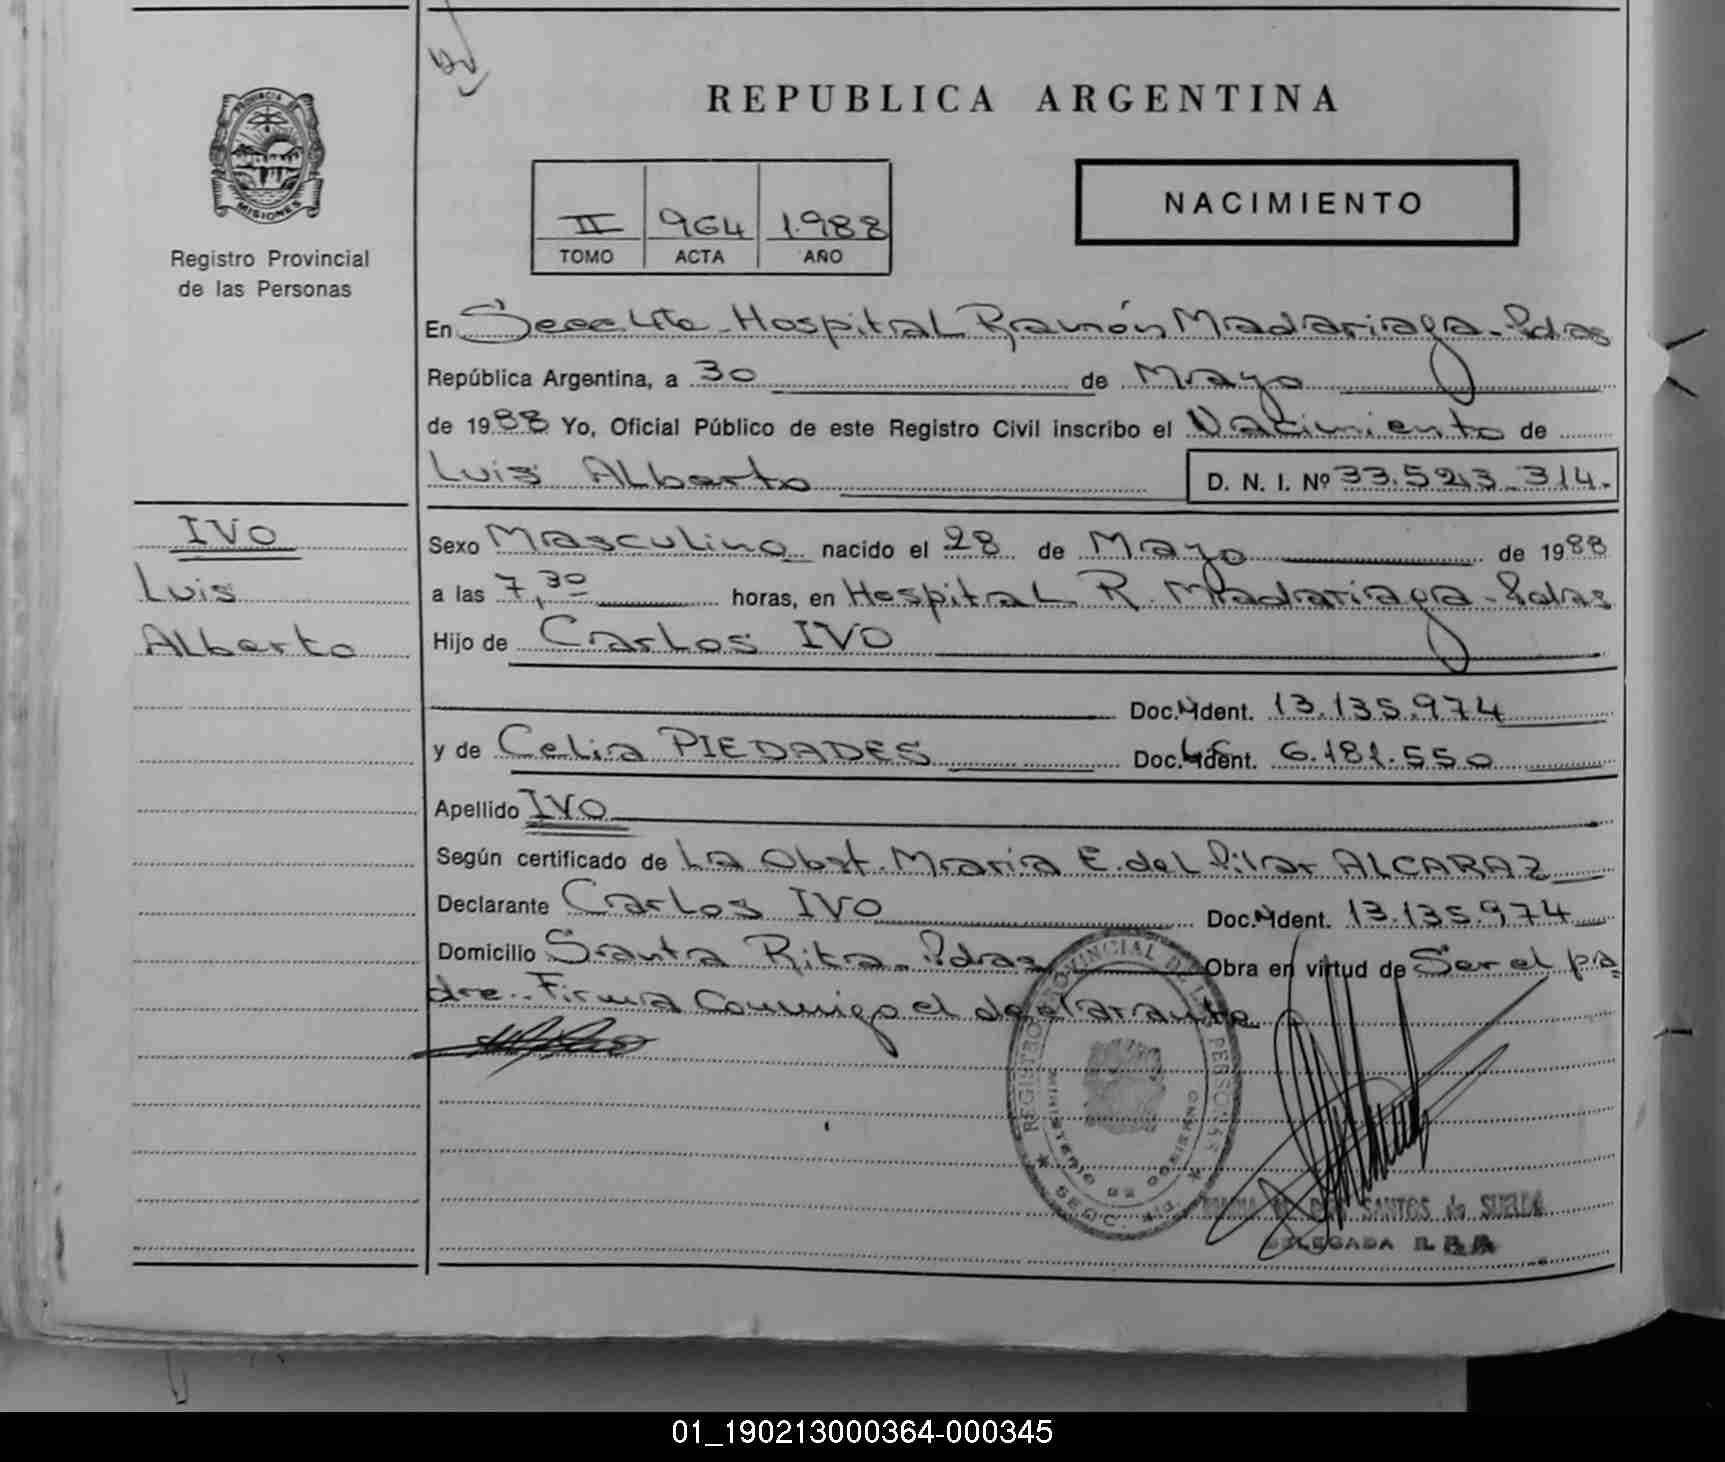 REPUBLICA ARGENTINA
PROVINCIA DE
MISIONES
Registro Provincial
de las Personas
NACIMIENTO
II 964 1.988
TOMO ACTA AÑO
En Secc 4ta - Hospital Ramón Madariaga - Pdas
República Argentina, a 30 de Mayo
de 1988 Yo, Oficial Público de este Registro Civil inscribo el Nacimiento de
Luis Alberto D. N. I. Nº 33.523.314.
IVO
Luis
Alberto
Sexo Masculino nacido el 28 de Mayo de 1988
a las 7,30 horas, en Hospital R. Madariaga - Pdas
Hijo de Carlos IVO
Doc. Ident. 13.135.974
y de Celia PIEDADES Doc. Ident. 6.181.550
Apellido IVO
Según certificado de La Obst. Maria E. del Pilar ALCARAZ
Declarante Carlos IVO Doc. Ident. 13.135.974
Domicilio Santa Rita - Pdas Obra en virtud de Ser el pa
dre - Firma Conmigo el declarante
REGISTRO PROVINCIAL DE LAS PERSONAS
MINISTERIO DE GOBIERNO
SECC. 4ta.
SANTOS de
DELEGADA
01_190213000364-000345